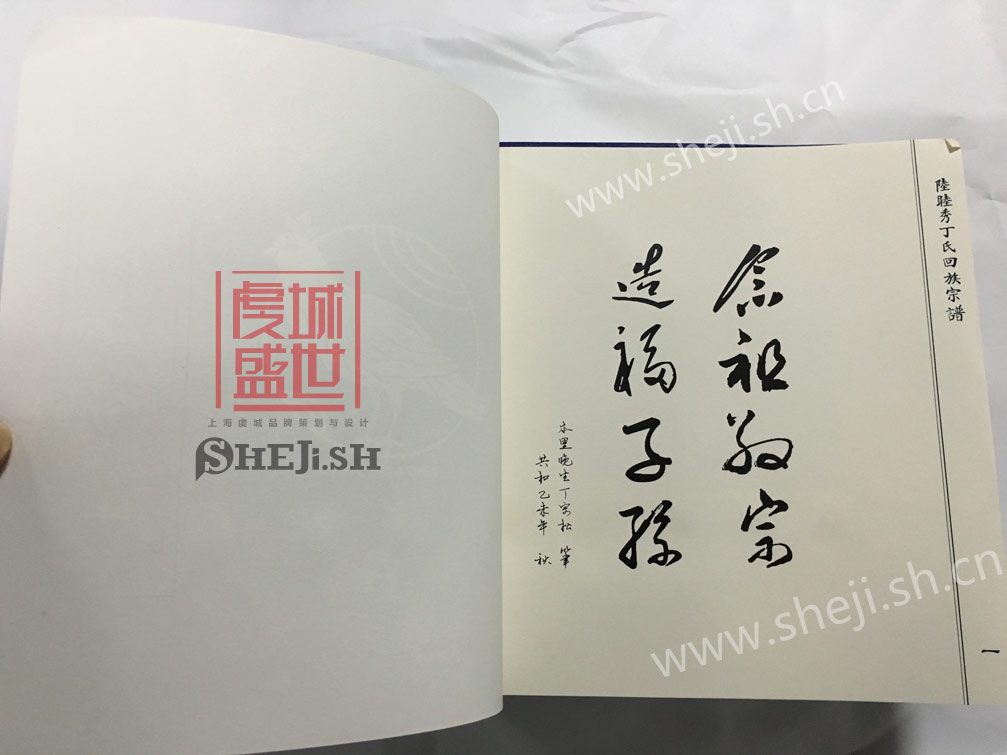 陸睦秀丁氏回族宗譜
念祖敬宗
造福子孫
本里晚生丁寄松 筆
共和乙未年 秋
一
虞城
盛世
上海虞城品牌策划与设计
SHEJi.SH
www.sheji.sh.cn
www.sheji.sh.cn